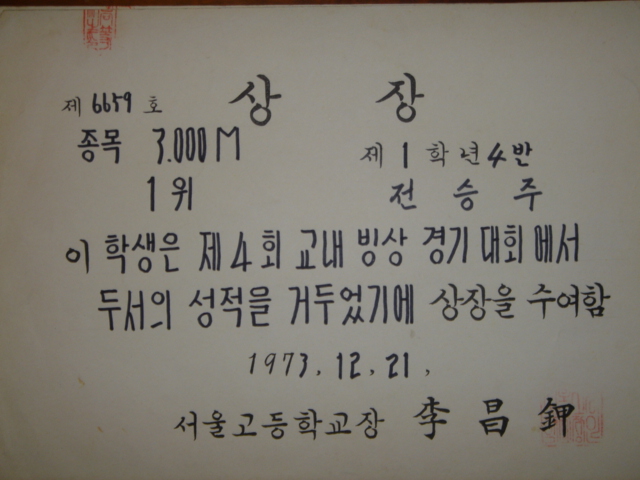 상 장
제 6659 호
종목 3.000 M
제 1 학년 4 반
1 위
전 승 주
이 학생은 제 4 회 교내 빙상 경기 대회에서
두서의 성적을 거두었기에 상장을 수여함
1973. 12. 21.
서울고등학교장 李 昌 鉀